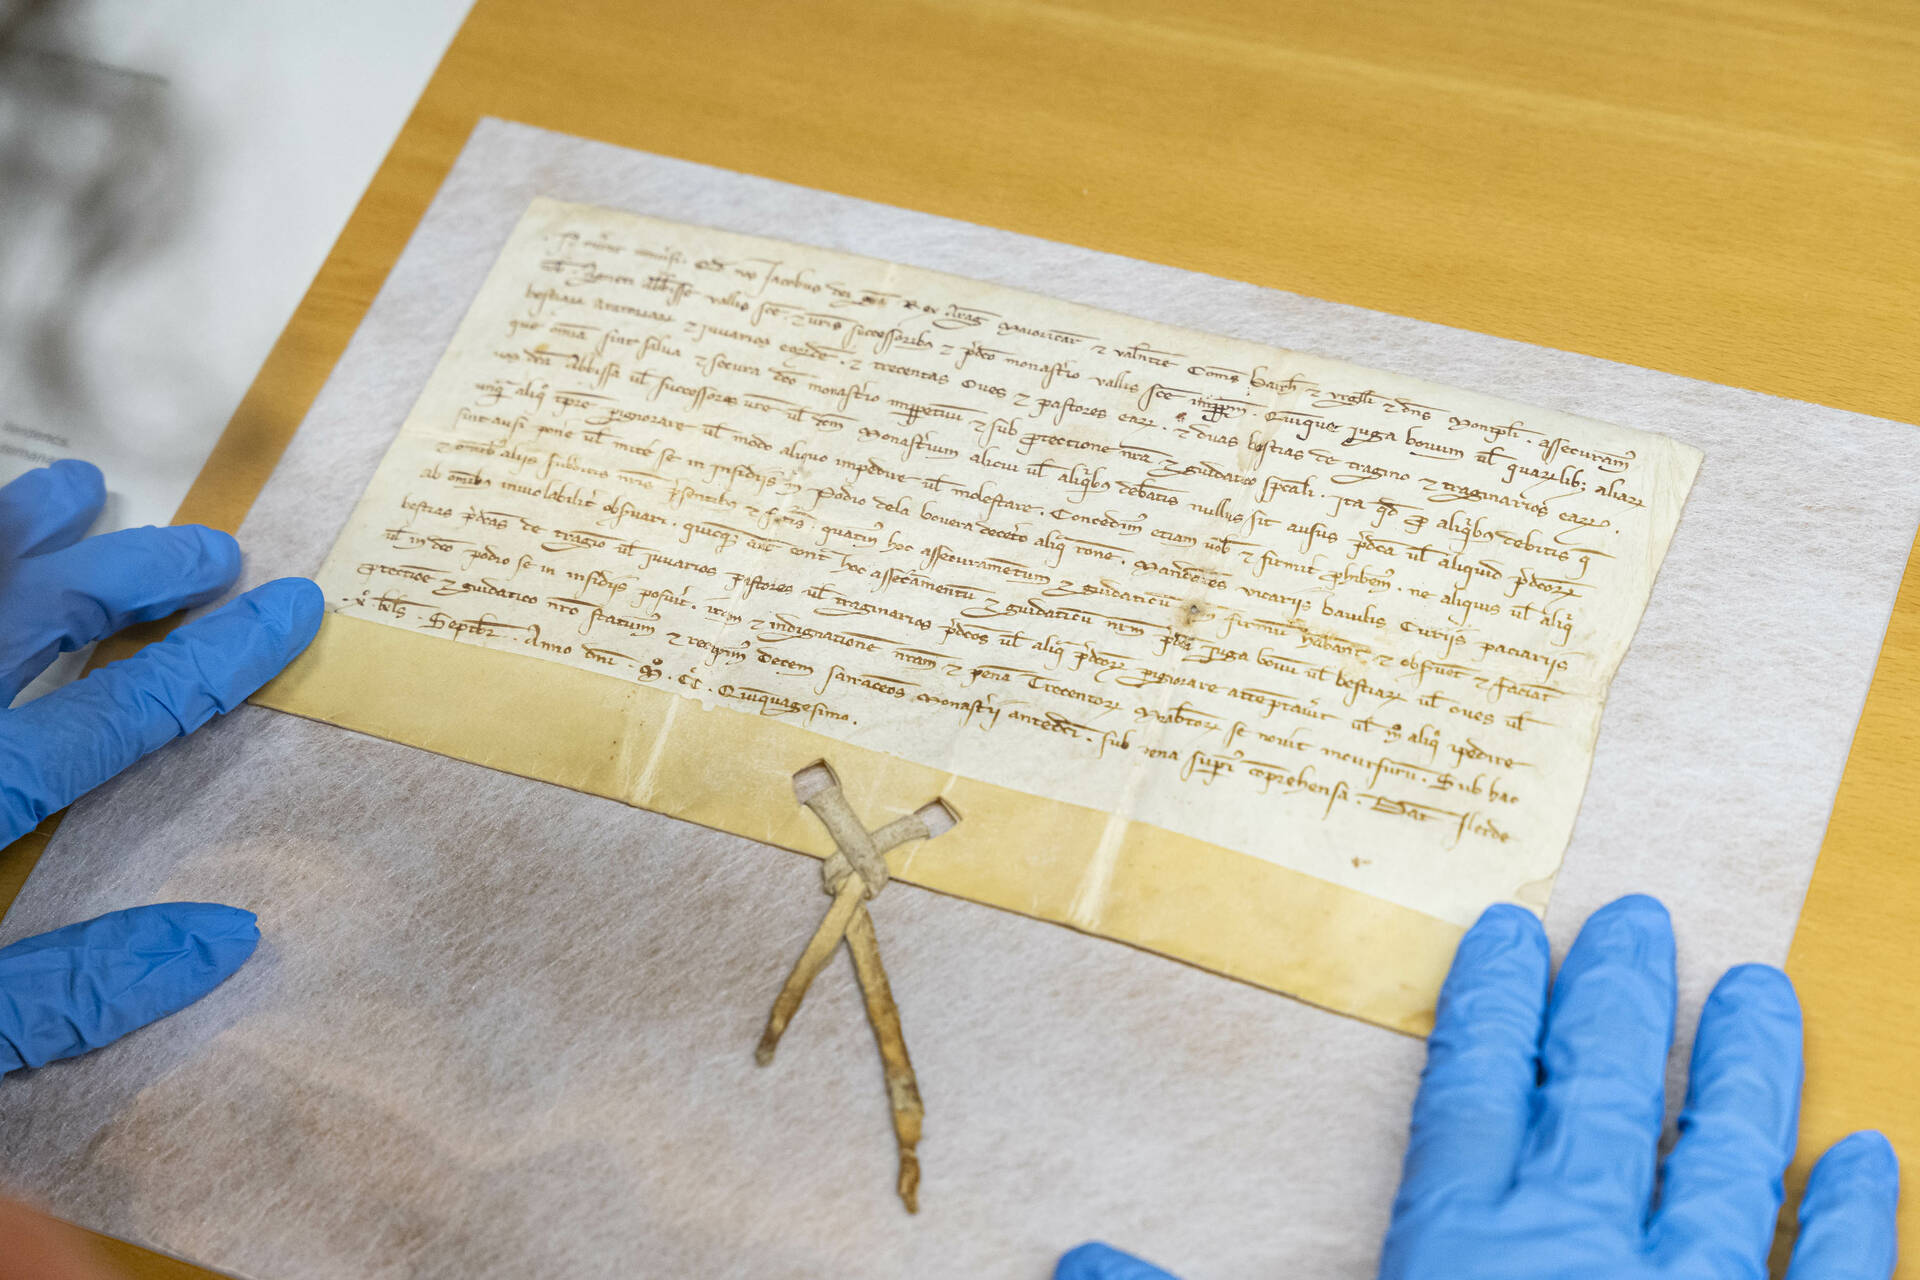 nos Jacobus dei gra Rex Arag Maioricar ⁊ valntie Coms barch ⁊ urgll ⁊ dns Montpli. assecuram
Agneti abbisse vallis sce. ⁊ uris successoribz ⁊ pdco monastio vallis sce Quinque iuga bouum ul quarlibz aliar
bestiar ⁊ iuuarios eordem. ⁊ trecentas Oues ⁊ pastores ear. ⁊ duas bestias de tragino ⁊ traginarios ear.
que omia sint salua ⁊ secura dco monastio imppetuu ⁊ sub proteccione nra ⁊ guidatico speali. Ita qd pro aliqbz debitis q
uos dca Abbissa ul successores ure ul dcm Monastium alicui ul aliqbz debeatis nullus sit ausus pdca ul aliquid pdcor
unq aliq tpre pignorare ul modo aliquo impedire ul molestare. Concedim etiam uob ⁊ firmit phibem. ne aliquis ul aliq
sint ausi pone ul mite se in insidiis in Podio dela bouera deceto aliq rone. vicariis baiulis Curiis paciariis
⁊ omib aliis subditis nris psentibz ⁊ futis. quatin hoc assecuramentum ⁊ guidaticu firmu habeant ⁊ obseruet ⁊ faciat
ab omibz inuiolabilit obseruari. quicuq aut cont hoc assecuramentu ⁊ guidaticu nrm pdca iuga bouu ul bestiar ul oues ul
bestias pdcas de tragio ul iuuarios Pastores ul traginarios pdcos ul aliq pdcor pignorare attemptauit ul in aliq ipedire
ul in dco podio se in insidiis posuit. iram ⁊ indignatione nram ⁊ pena Trecentor Mrabtor se nouit incursuru. Sub hac
proteccioe ⁊ guidatico nro statuim ⁊ recipim decem sarracenos Monastii antedci. sub pena supi comprehensa. Dat Ilerde
kls. Septbr. Anno dni. M. CC. Quiquagesimo.